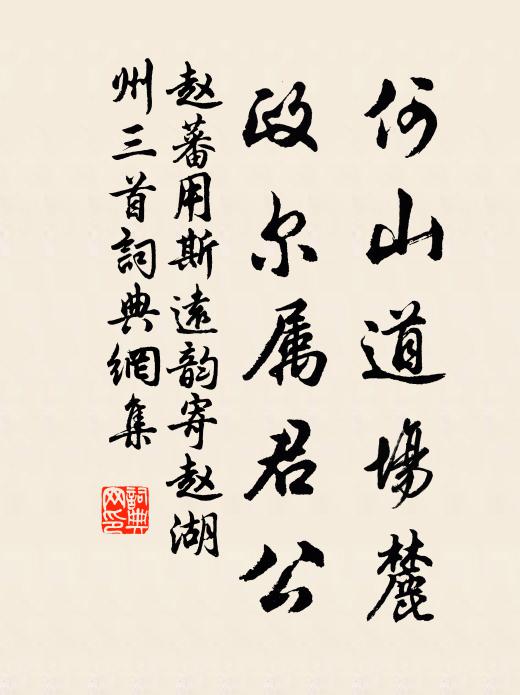 何山道場麓
政尔属君公
赵蕃用斯遠韵寄赵湖
州三首詞典網集
詞典
网印